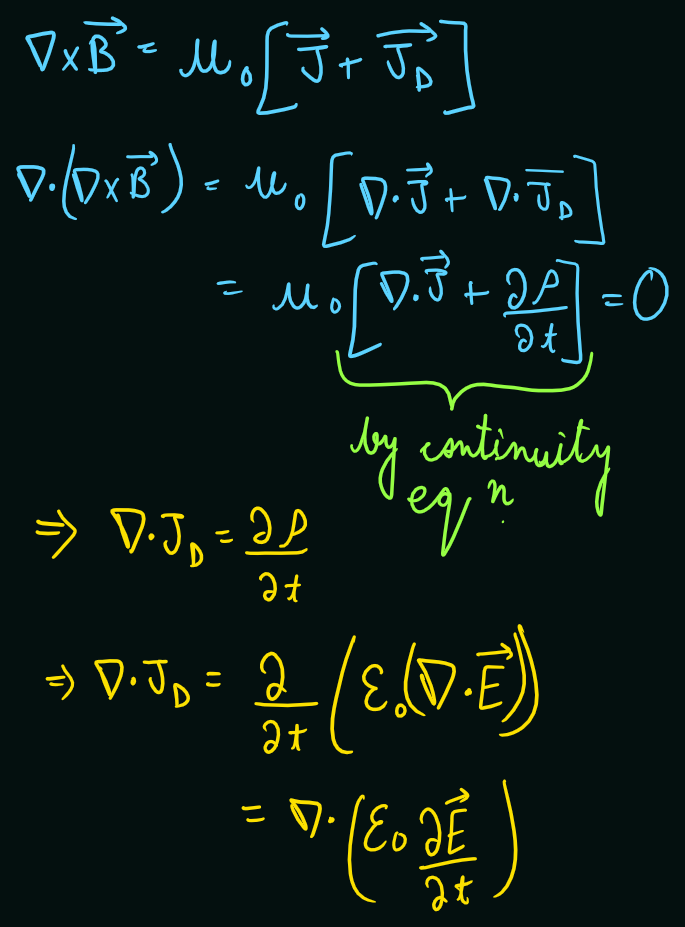 ∇×B⃗ = μ₀[J⃗ + J⃗_D]
∇·(∇×B⃗) = μ₀[∇·J⃗ + ∇·J̅_D]
= μ₀[∇·J⃗ + ∂ρ/∂t] = 0
by continuity
eqⁿ.
⇒ ∇·J_D = ∂ρ/∂t
⇒ ∇·J_D = ∂/∂t (ε₀(∇·E⃗))
= ∇·(ε₀ ∂E⃗/∂t)